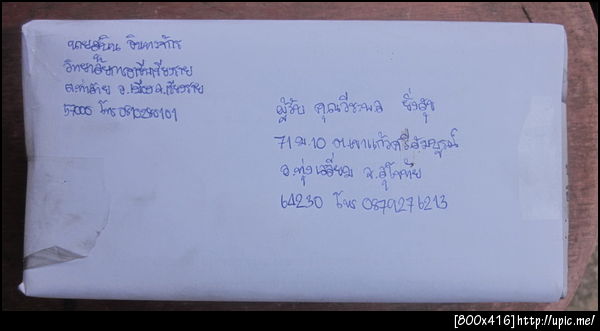 วิทยาลัยการอาชีพเชียงราย
ต.ท่าสาย อ.เมือง จ.เชียงราย
57000 โทร
ผู้รับ คุณวีระพล ยิ่งสุข
71 ม.10 ต.เขาแก้วศรีสมบูรณ์
อ.ทุ่งเสลี่ยม จ.สุโขทัย
64230 โทร 0879276213
[800x416]http://upic.me/